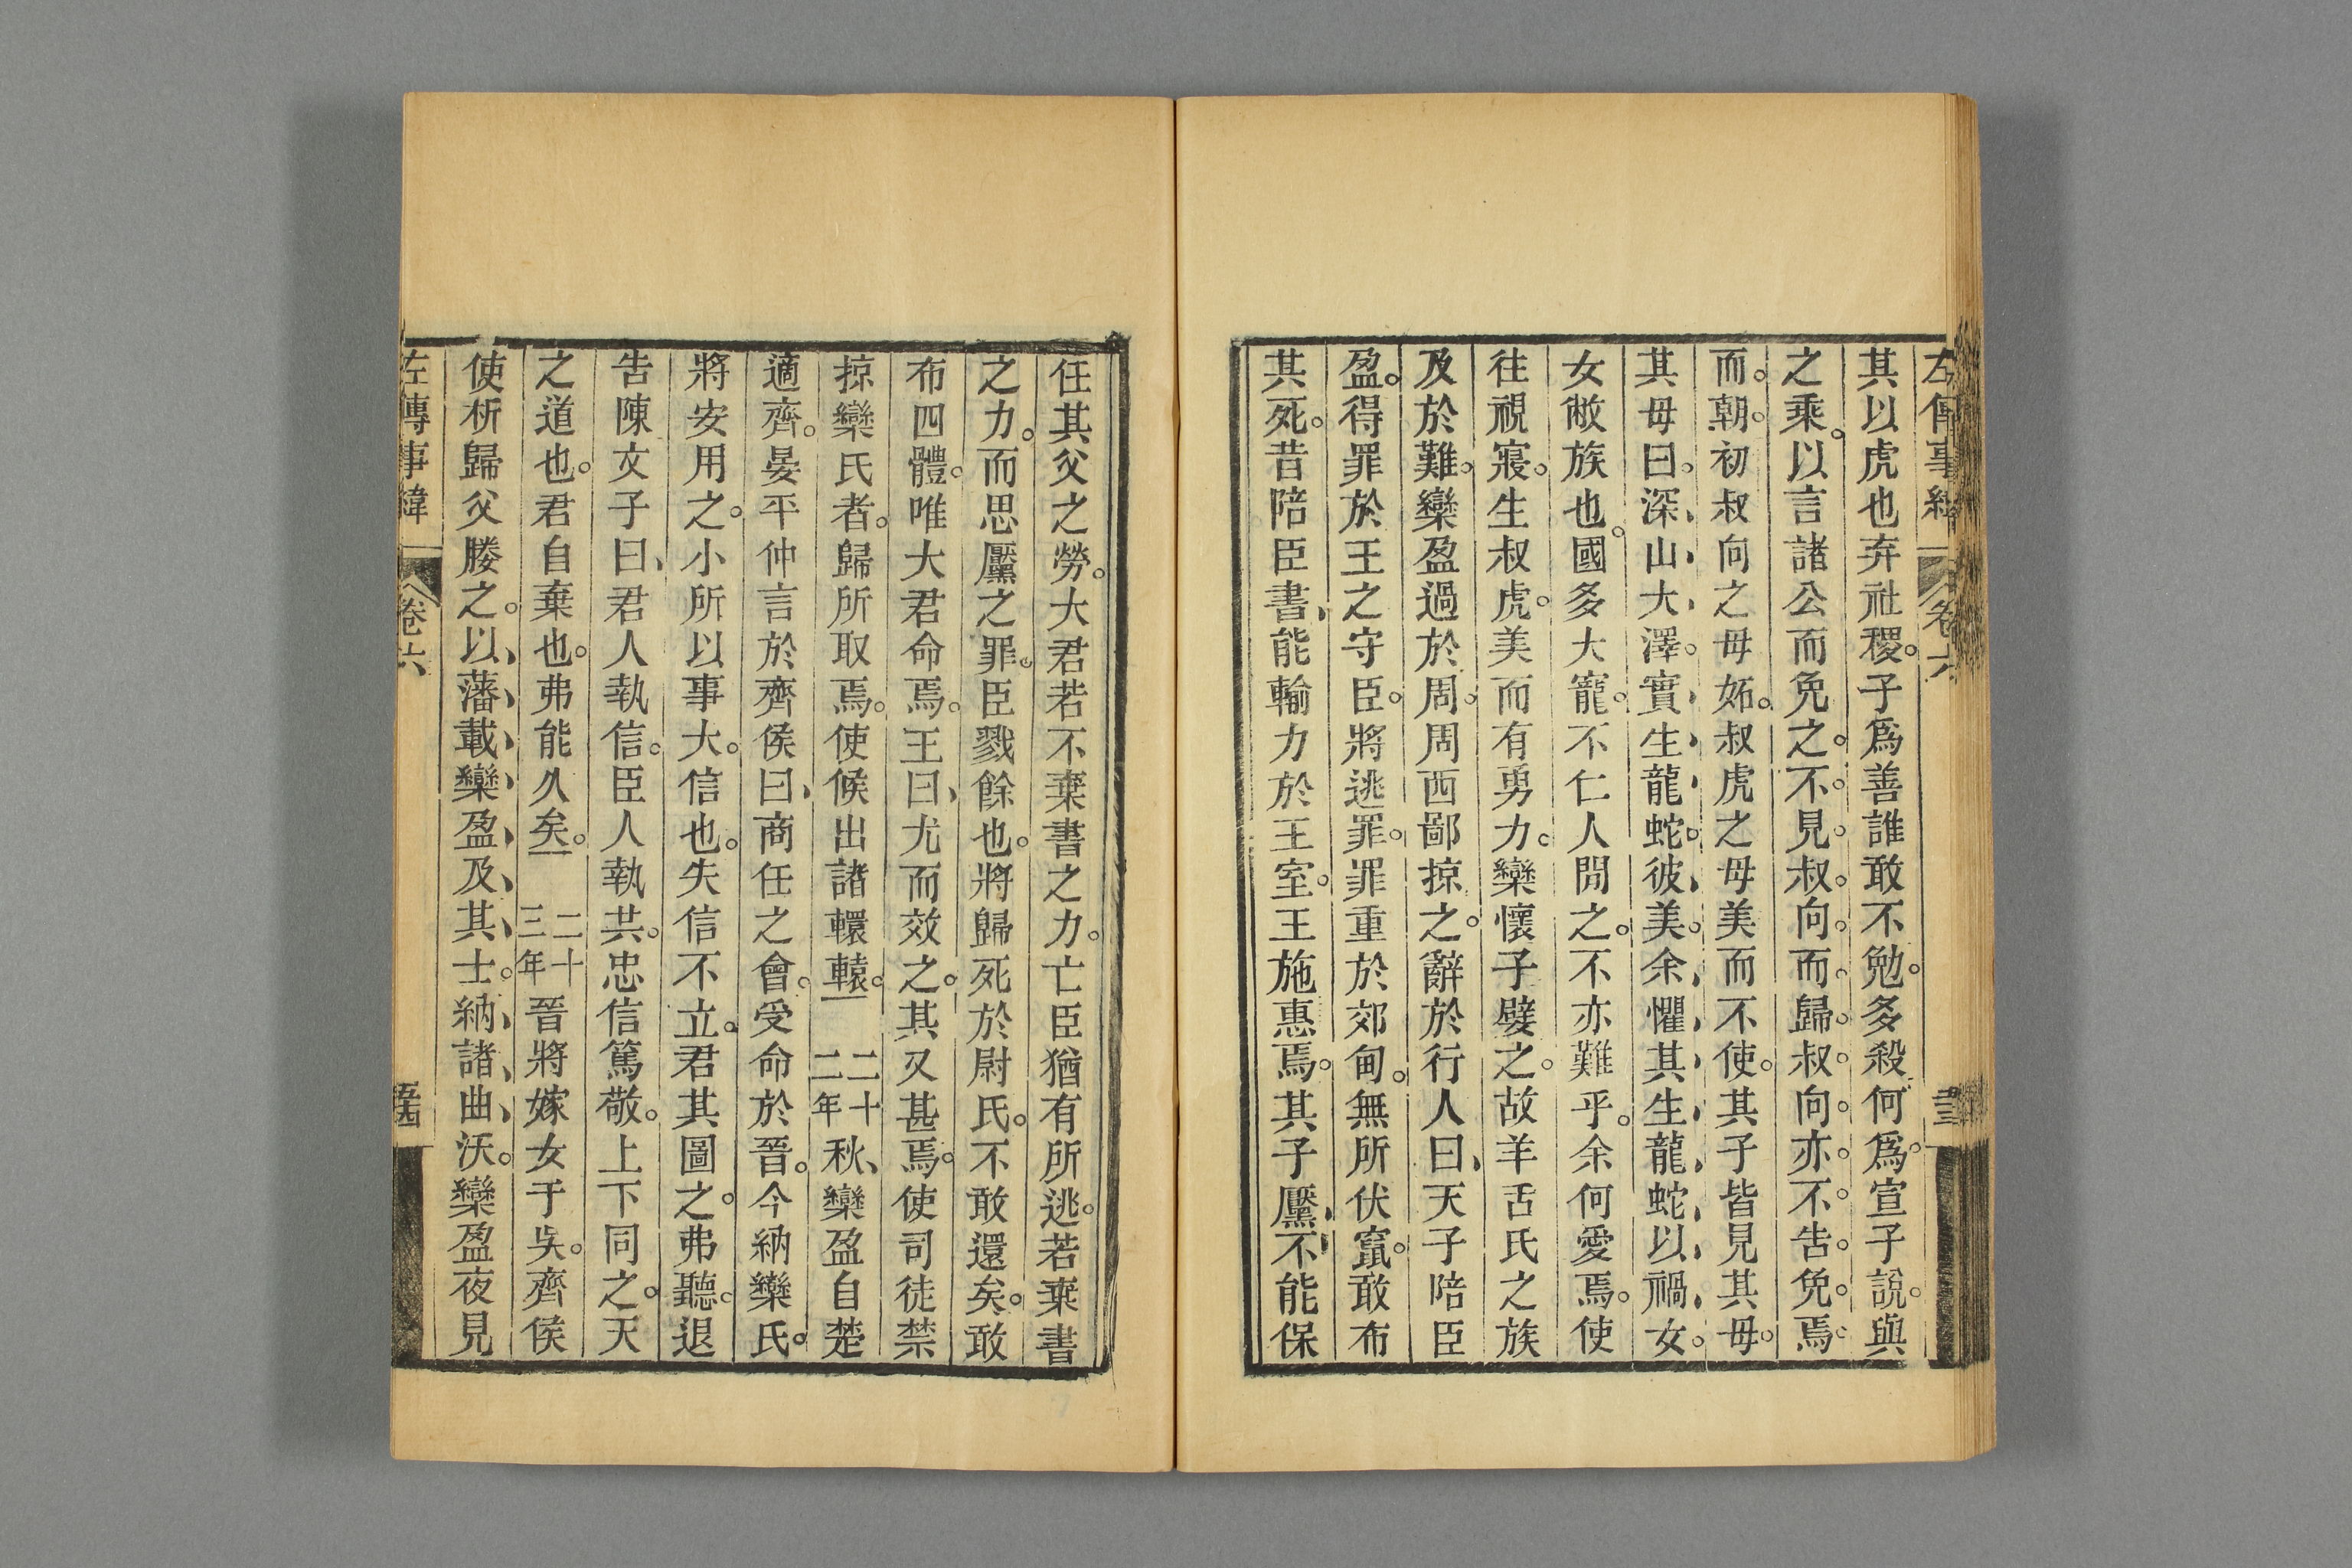 左傳事緯 卷六 五三
其以虎也弃社稷。子爲善誰敢不勉。多殺何爲。宣子說。與
之乘。以言諸公而免之。不見叔向而歸。叔向亦不告免焉
而朝。初叔向之母妬。叔虎之母美而不使。其子皆見其母。
其母曰。深山大澤。實生龍蛇。彼美。余懼其生龍蛇以禍女。
女敝族也。國多大寵。不仁人閒之。不亦難乎。余何愛焉。使
往視寢。生叔虎。美而有勇力。欒懷子嬖之。故羊舌氏之族
及於難。欒盈過於周。周西鄙掠之。辭於行人曰、天子陪臣
盈。得罪於王之守臣。將逃罪。罪重於郊甸。無所伏竄。敢布
其死。昔陪臣書、能輸力於王室。王施惠焉。其子黶、不能保
任其父之勞。大君若不棄書之力。亡臣猶有所逃。若棄書
之力。而思黶之罪。臣戮餘也。將歸死於尉氏。不敢還矣。敢
布四體。唯大君命焉。王曰、尤而效之。其又甚焉。使司徒禁
掠欒氏者。歸所取焉。使候出諸轘轅。二十二年秋、欒盈自楚
適齊。晏平仲言於齊侯曰、商任之會。受命於晉。今納欒氏。
將安用之。小所以事大。信也。失信不立。君其圖之。弗聽。退
告陳文子曰、君人執信。臣人執共。忠信篤敬。上下同之。天
之道也。君自棄也。弗能久矣。二十三年晉將嫁女于吳。齊侯
使析歸父媵之。以藩載欒盈及其士。納諸曲沃。欒盈夜見
左傳事緯 卷六 五四